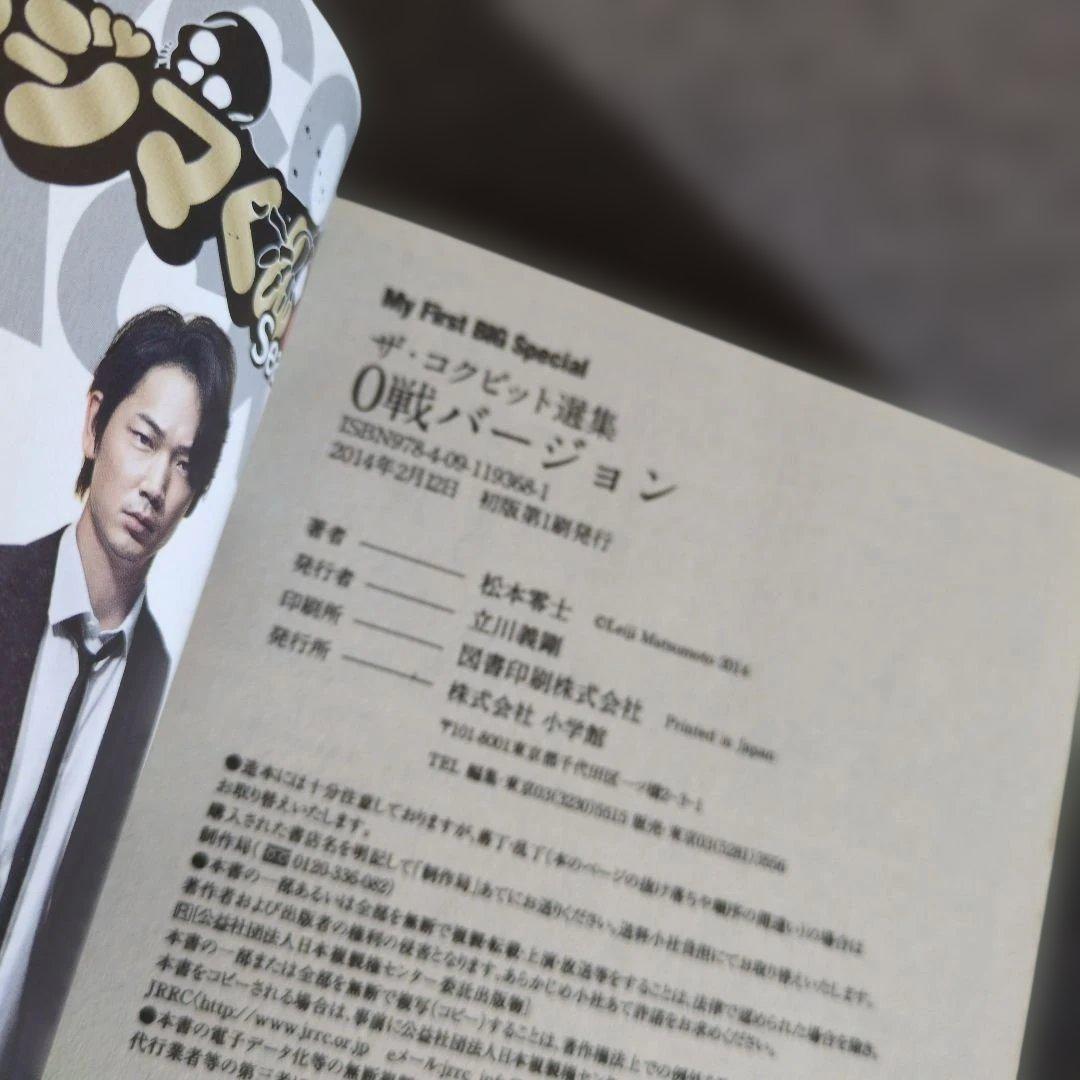 My First BIG Special
ザ・コクピット選集
0戦バージョン
ISBN978-4-09-119368-1
2014年2月12日 初版第1刷発行
著者 松本零士 ©Leiji Matsumoto 2014
発行者 立川義剛
印刷所 図書印刷株式会社 Printed in Japan
発行所 株式会社 小学館
〒101-8001東京都千代田区一ッ橋2-3-1
TEL 編集・東京03(3230)5515 販売・東京03(5281)3556
●造本には十分注意しておりますが、落丁・乱丁(本のページの抜け落ちや順序の間違い)の場合は
お取り替えいたします。
購入された書店名を明記して「制作局」あてにお送りください。送料小社負担にてお取り替えいたします。
制作局( 0120-336-082)
●本書の一部あるいは全部を無断で複製・転載・上演・放送等をすることは、法律で認められた場合を除き、
著作者および出版者の権利の侵害となります。あらかじめ小社あて許諾をお求めください。
[公益社団法人日本複製権センター委託出版物]
本書の一部または全部を無断で複写(コピー)することは、著作権法上での例外を
本書をコピーされる場合は、事前に公益社団法人日本複製権セン
JRRC〈http://www.jrrc.or.jp eメール:jrrc_inf
●本書の電子データ化等の無断複製
代行業者等の第三者に